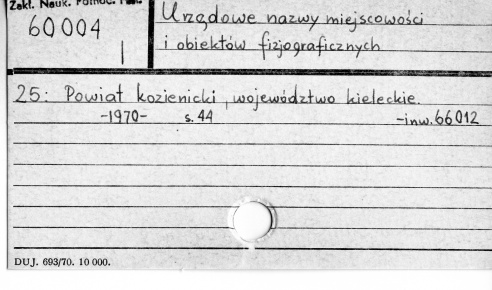 Zakł. Nauk. Pomoc. Hist.
60004
I
Urzędowe nazwy miejscowości
i obiektów fizjograficznych
25: Powiat kozienicki, województwo kieleckie.
-1970- s. 44 -inw. 66012
DUJ. 693/70. 10 000.